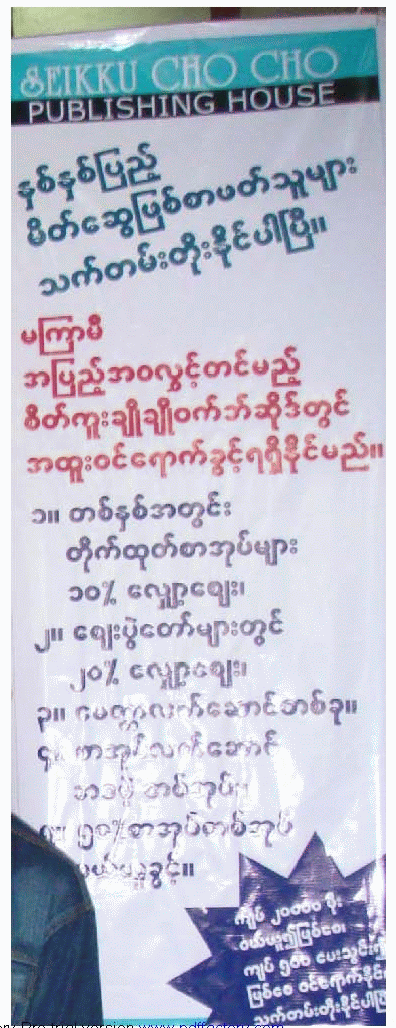 SEIKKU CHO CHO
PUBLISHING HOUSE
နှစ်နှစ်ပြည့်
မိတ်ဆွေဖြစ်စာဖတ်သူများ
သက်တမ်းတိုးနိုင်ပါပြီ။
မကြာမီ
အပြည့်အဝလွှင့်တင်မည့်
စိတ်ကူးချိုချိုဝက်ဘ်ဆိုဒ်တွင်
အထူးဝင်ရောက်ခွင့်ရရှိနိုင်မည်။
၁။ တစ်နှစ်အတွင်း
တိုက်ထုတ်စာအုပ်များ
၁၀% လျှော့ဈေး၊
၂။ ဈေးပွဲတော်များတွင်
၂၀% လျှော့ဈေး၊
၃။ မေတ္တာလက်ဆောင်တစ်ခု။
၄။ စာအုပ်လက်ဆောင်
အခမဲ့ တစ်အုပ်။
၅၀%စာအုပ်တစ်အုပ်
ဝယ်ယူခွင့်။
ကျပ် ၂၀၀၀၀ ဖိုး
ဝယ်ယူ၍ဖြစ်စေ၊
ကျပ် ၅၀၀ ပေးသွင်း၍
ဖြစ်စေ ဝင်ရောက်နိုင်
သက်တမ်းတိုးနိုင်ပါပြီ
version www.pdffactory.com